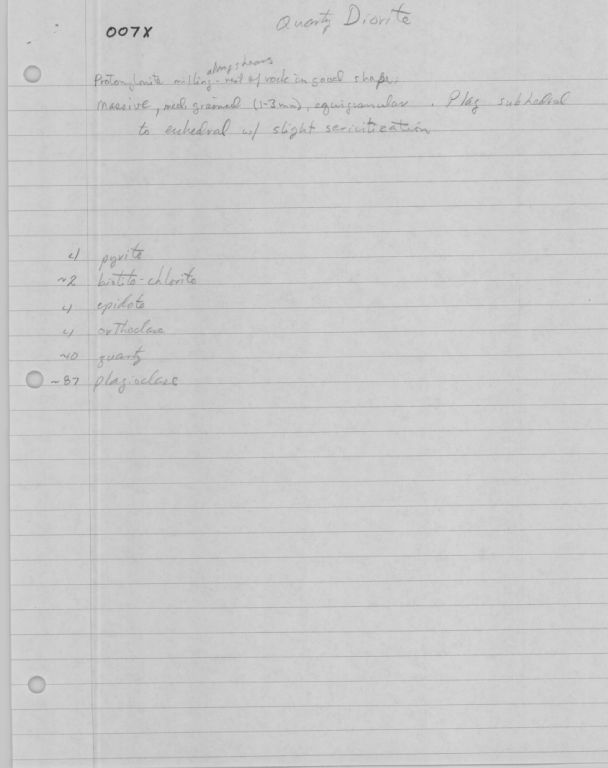 Quartz Diorite
007X
along shears
Protomylonite milling - rest of rock in good shape.
Massive, med. grained (1-3mm), equigranular. Plag subhedral
to euhedral w/ slight sericitization
<1 pyrite
~2 biotite-chlorite
<1 epidote
<1 orthoclase
~10 quartz
~87 plagioclase